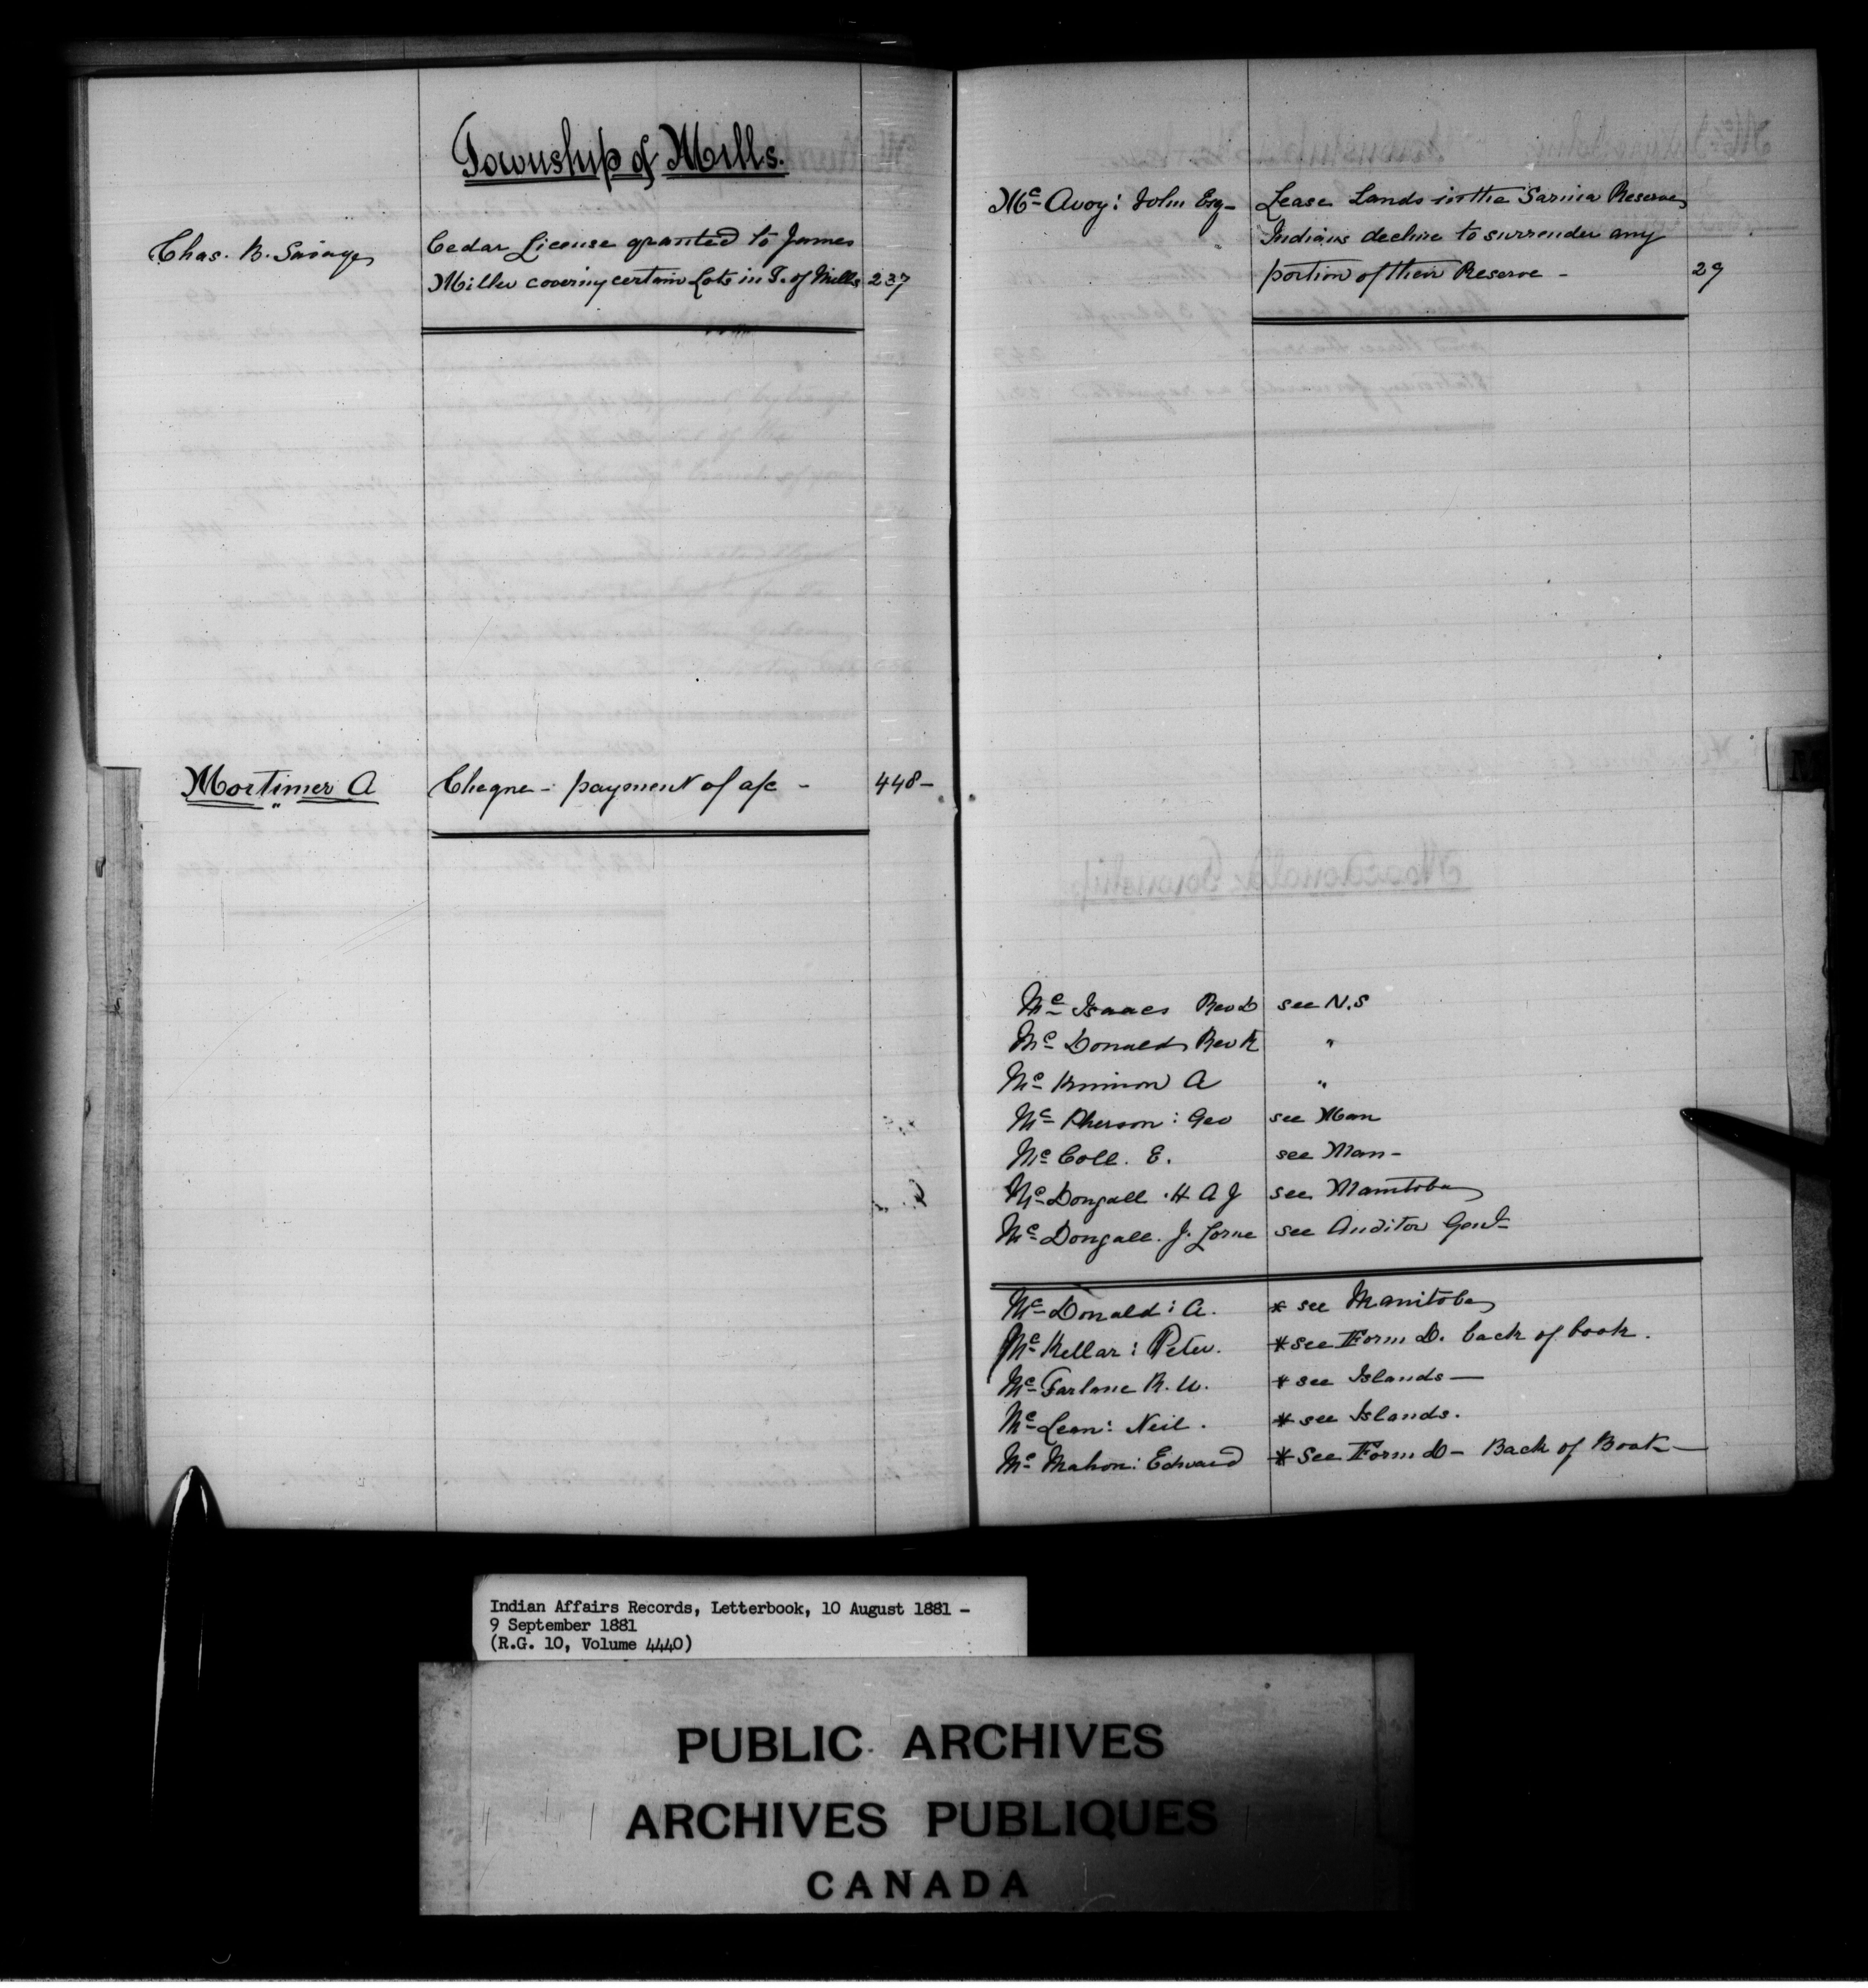 Township of Mills.
Chas. B. Savage Cedar License granted to James
Miller covering certain Lots in T. of Mills 237
Mortimer A Cheque - payment of a/c - 448-
Mc Avoy: John Esq- Lease Lands in the Sarnia Reserve
Indians decline to surrender any
portion of their Reserve - 29
Mc Isaacs Rev D see N.S
Mc Donald Rev R "
Mc Kinnon A "
Mc Pherson: Geo see Man
Mc Coll. E. see Man-
Mc Dougall. H A J see Manitoba
Mc Dougall. J. Lorne see Auditor Genl-
Mc Donald: A. * see Manitoba
Mc Kellar: Peter. * see Form D. back of book.
Mc Farlane R. W. * see Islands -
Mc Lean: Neil. * see Islands.
Mc Mahon: Edward * See Form D - Back of Book -
M
Indian Affairs Records, Letterbook, 10 August 1881 -
9 September 1881
(R.G. 10, Volume 4440)
PUBLIC ARCHIVES
ARCHIVES PUBLIQUES
CANADA